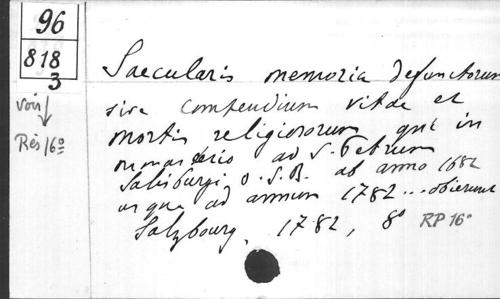 96
818
3
voir
Rés 16º
Saecularis memoria defunctorum
sive compendium vitae et
mortis religiosorum qui in
monasterio ad S. Petrum
Salisburgi O. S. B. ab anno 1682
usque ad annum 1782... obierunt
Salzbourg, 1782, 8º RP 16º